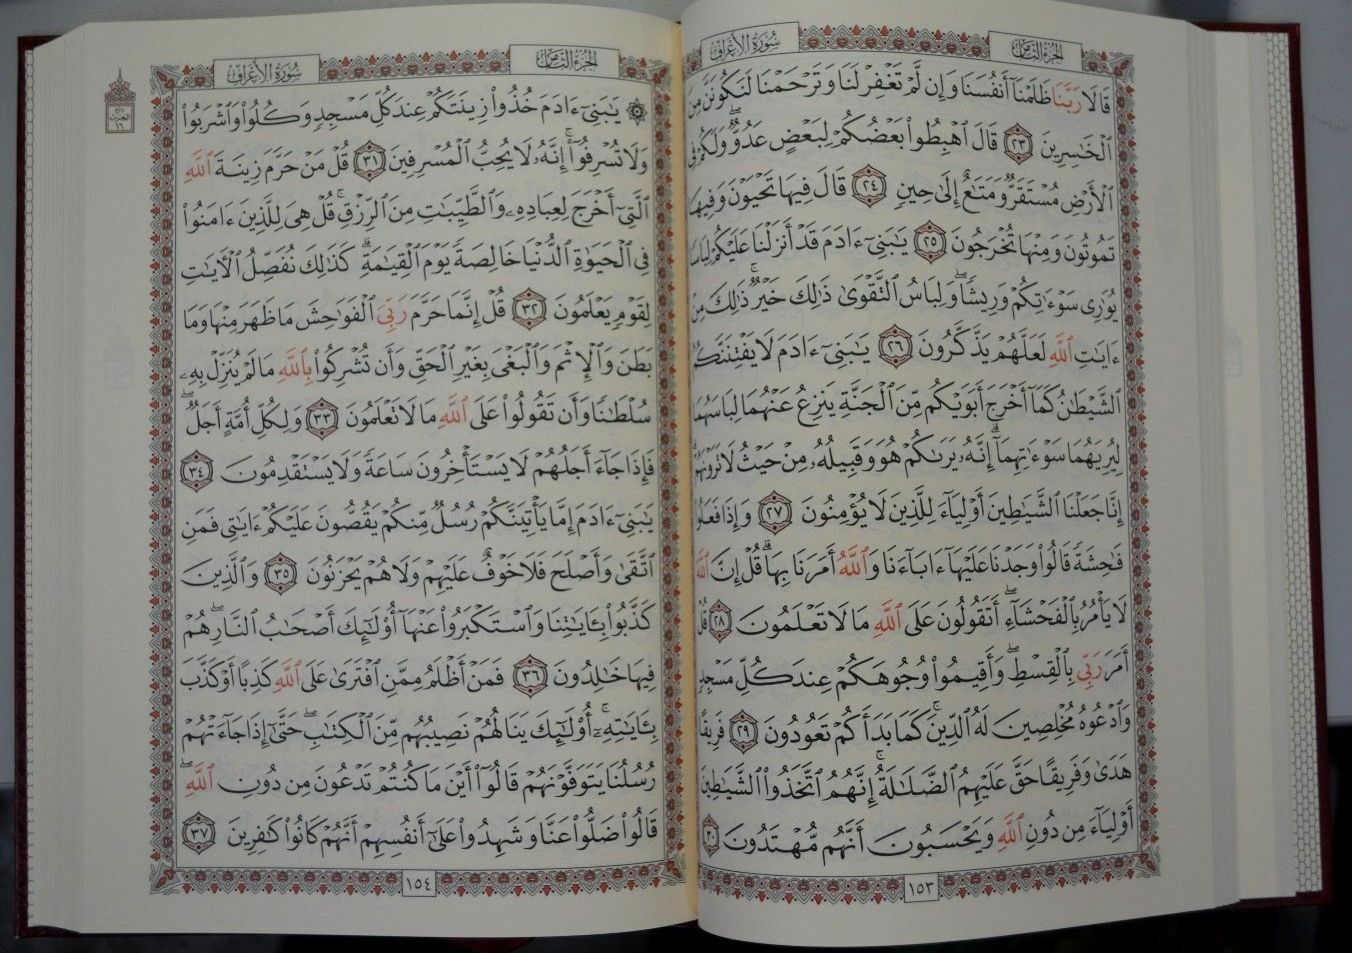 الجزء الثامن
سورة الأعراف
قَالَا رَبَّنَا ظَلَمْنَآ أَنفُسَنَا وَإِن لَّمْ تَغْفِرْ لَنَا وَتَرْحَمْنَا لَنَكُونَنَّ مِنَ
ٱلْخَٰسِرِينَ ٢٣ قَالَ ٱهْبِطُوا۟ بَعْضُكُمْ لِبَعْضٍ عَدُوٌّ ۖ وَلَكُمْ فِى
ٱلْأَرْضِ مُسْتَقَرٌّ وَمَتَٰعٌ إِلَىٰ حِينٍ ٢٤ قَالَ فِيهَا تَحْيَوْنَ وَفِيهَا
تَمُوتُونَ وَمِنْهَا تُخْرَجُونَ ٢٥ يَٰبَنِىٓ ءَادَمَ قَدْ أَنزَلْنَا عَلَيْكُمْ لِبَاسًا
يُوَٰرِى سَوْءَٰتِكُمْ وَرِيشًا ۖ وَلِبَاسُ ٱلتَّقْوَىٰ ذَٰلِكَ خَيْرٌ ۚ ذَٰلِكَ مِنْ
ءَايَٰتِ ٱللَّهِ لَعَلَّهُمْ يَذَّكَّرُونَ ٢٦ يَٰبَنِىٓ ءَادَمَ لَا يَفْتِنَنَّكُمُ
ٱلشَّيْطَٰنُ كَمَآ أَخْرَجَ أَبَوَيْكُم مِّنَ ٱلْجَنَّةِ يَنزِعُ عَنْهُمَا لِبَاسَهُمَا
لِيُرِيَهُمَا سَوْءَٰتِهِمَآ ۗ إِنَّهُۥ يَرَىٰكُمْ هُوَ وَقَبِيلُهُۥ مِنْ حَيْثُ لَا تَرَوْنَهُمْ ۗ
إِنَّا جَعَلْنَا ٱلشَّيَٰطِينَ أَوْلِيَآءَ لِلَّذِينَ لَا يُؤْمِنُونَ ٢٧ وَإِذَا فَعَلُوا۟
فَٰحِشَةً قَالُوا۟ وَجَدْنَا عَلَيْهَآ ءَابَآءَنَا وَٱللَّهُ أَمَرَنَا بِهَا ۗ قُلْ إِنَّ ٱللَّهَ
لَا يَأْمُرُ بِٱلْفَحْشَآءِ ۖ أَتَقُولُونَ عَلَى ٱللَّهِ مَا لَا تَعْلَمُونَ ٢٨ قُلْ
أَمَرَ رَبِّى بِٱلْقِسْطِ ۖ وَأَقِيمُوا۟ وُجُوهَكُمْ عِندَ كُلِّ مَسْجِدٍ
وَٱدْعُوهُ مُخْلِصِينَ لَهُ ٱلدِّينَ ۚ كَمَا بَدَأَكُمْ تَعُودُونَ ٢٩ فَرِيقًا
هَدَىٰ وَفَرِيقًا حَقَّ عَلَيْهِمُ ٱلضَّلَٰلَةُ ۗ إِنَّهُمُ ٱتَّخَذُوا۟ ٱلشَّيَٰطِينَ
أَوْلِيَآءَ مِن دُونِ ٱللَّهِ وَيَحْسَبُونَ أَنَّهُم مُّهْتَدُونَ ٣٠
١٥٣
الجزء الثامن
سورة الأعراف
۞ يَٰبَنِىٓ ءَادَمَ خُذُوا۟ زِينَتَكُمْ عِندَ كُلِّ مَسْجِدٍ وَكُلُوا۟ وَٱشْرَبُوا۟
وَلَا تُسْرِفُوٓا۟ ۚ إِنَّهُۥ لَا يُحِبُّ ٱلْمُسْرِفِينَ ٣١ قُلْ مَنْ حَرَّمَ زِينَةَ ٱللَّهِ
ٱلَّتِىٓ أَخْرَجَ لِعِبَادِهِۦ وَٱلطَّيِّبَٰتِ مِنَ ٱلرِّزْقِ ۚ قُلْ هِىَ لِلَّذِينَ ءَامَنُوا۟
فِى ٱلْحَيَوٰةِ ٱلدُّنْيَا خَالِصَةً يَوْمَ ٱلْقِيَٰمَةِ ۗ كَذَٰلِكَ نُفَصِّلُ ٱلْءَايَٰتِ
لِقَوْمٍ يَعْلَمُونَ ٣٢ قُلْ إِنَّمَا حَرَّمَ رَبِّىَ ٱلْفَوَٰحِشَ مَا ظَهَرَ مِنْهَا وَمَا
بَطَنَ وَٱلْإِثْمَ وَٱلْبَغْىَ بِغَيْرِ ٱلْحَقِّ وَأَن تُشْرِكُوا۟ بِٱللَّهِ مَا لَمْ يُنَزِّلْ بِهِۦ
سُلْطَٰنًا وَأَن تَقُولُوا۟ عَلَى ٱللَّهِ مَا لَا تَعْلَمُونَ ٣٣ وَلِكُلِّ أُمَّةٍ أَجَلٌ ۖ
فَإِذَا جَآءَ أَجَلُهُمْ لَا يَسْتَأْخِرُونَ سَاعَةً وَلَا يَسْتَقْدِمُونَ ٣٤
يَٰبَنِىٓ ءَادَمَ إِمَّا يَأْتِيَنَّكُمْ رُسُلٌ مِّنكُمْ يَقُصُّونَ عَلَيْكُمْ ءَايَٰتِى فَمَنِ
ٱتَّقَىٰ وَأَصْلَحَ فَلَا خَوْفٌ عَلَيْهِمْ وَلَا هُمْ يَحْزَنُونَ ٣٥ وَٱلَّذِينَ
كَذَّبُوا۟ بِـَٔايَٰتِنَا وَٱسْتَكْبَرُوا۟ عَنْهَآ أُو۟لَٰٓئِكَ أَصْحَٰبُ ٱلنَّارِ ۖ هُمْ
فِيهَا خَٰلِدُونَ ٣٦ فَمَنْ أَظْلَمُ مِمَّنِ ٱفْتَرَىٰ عَلَى ٱللَّهِ كَذِبًا أَوْ كَذَّبَ
بِـَٔايَٰتِهِۦٓ ۚ أُو۟لَٰٓئِكَ يَنَالُهُمْ نَصِيبُهُم مِّنَ ٱلْكِتَٰبِ ۖ حَتَّىٰٓ إِذَا جَآءَتْهُمْ
رُسُلُنَا يَتَوَفَّوْنَهُمْ قَالُوٓا۟ أَيْنَ مَا كُنتُمْ تَدْعُونَ مِن دُونِ ٱللَّهِ ۖ
قَالُوا۟ ضَلُّوا۟ عَنَّا وَشَهِدُوا۟ عَلَىٰٓ أَنفُسِهِمْ أَنَّهُمْ كَانُوا۟ كَٰفِرِينَ ٣٧
١٥٤